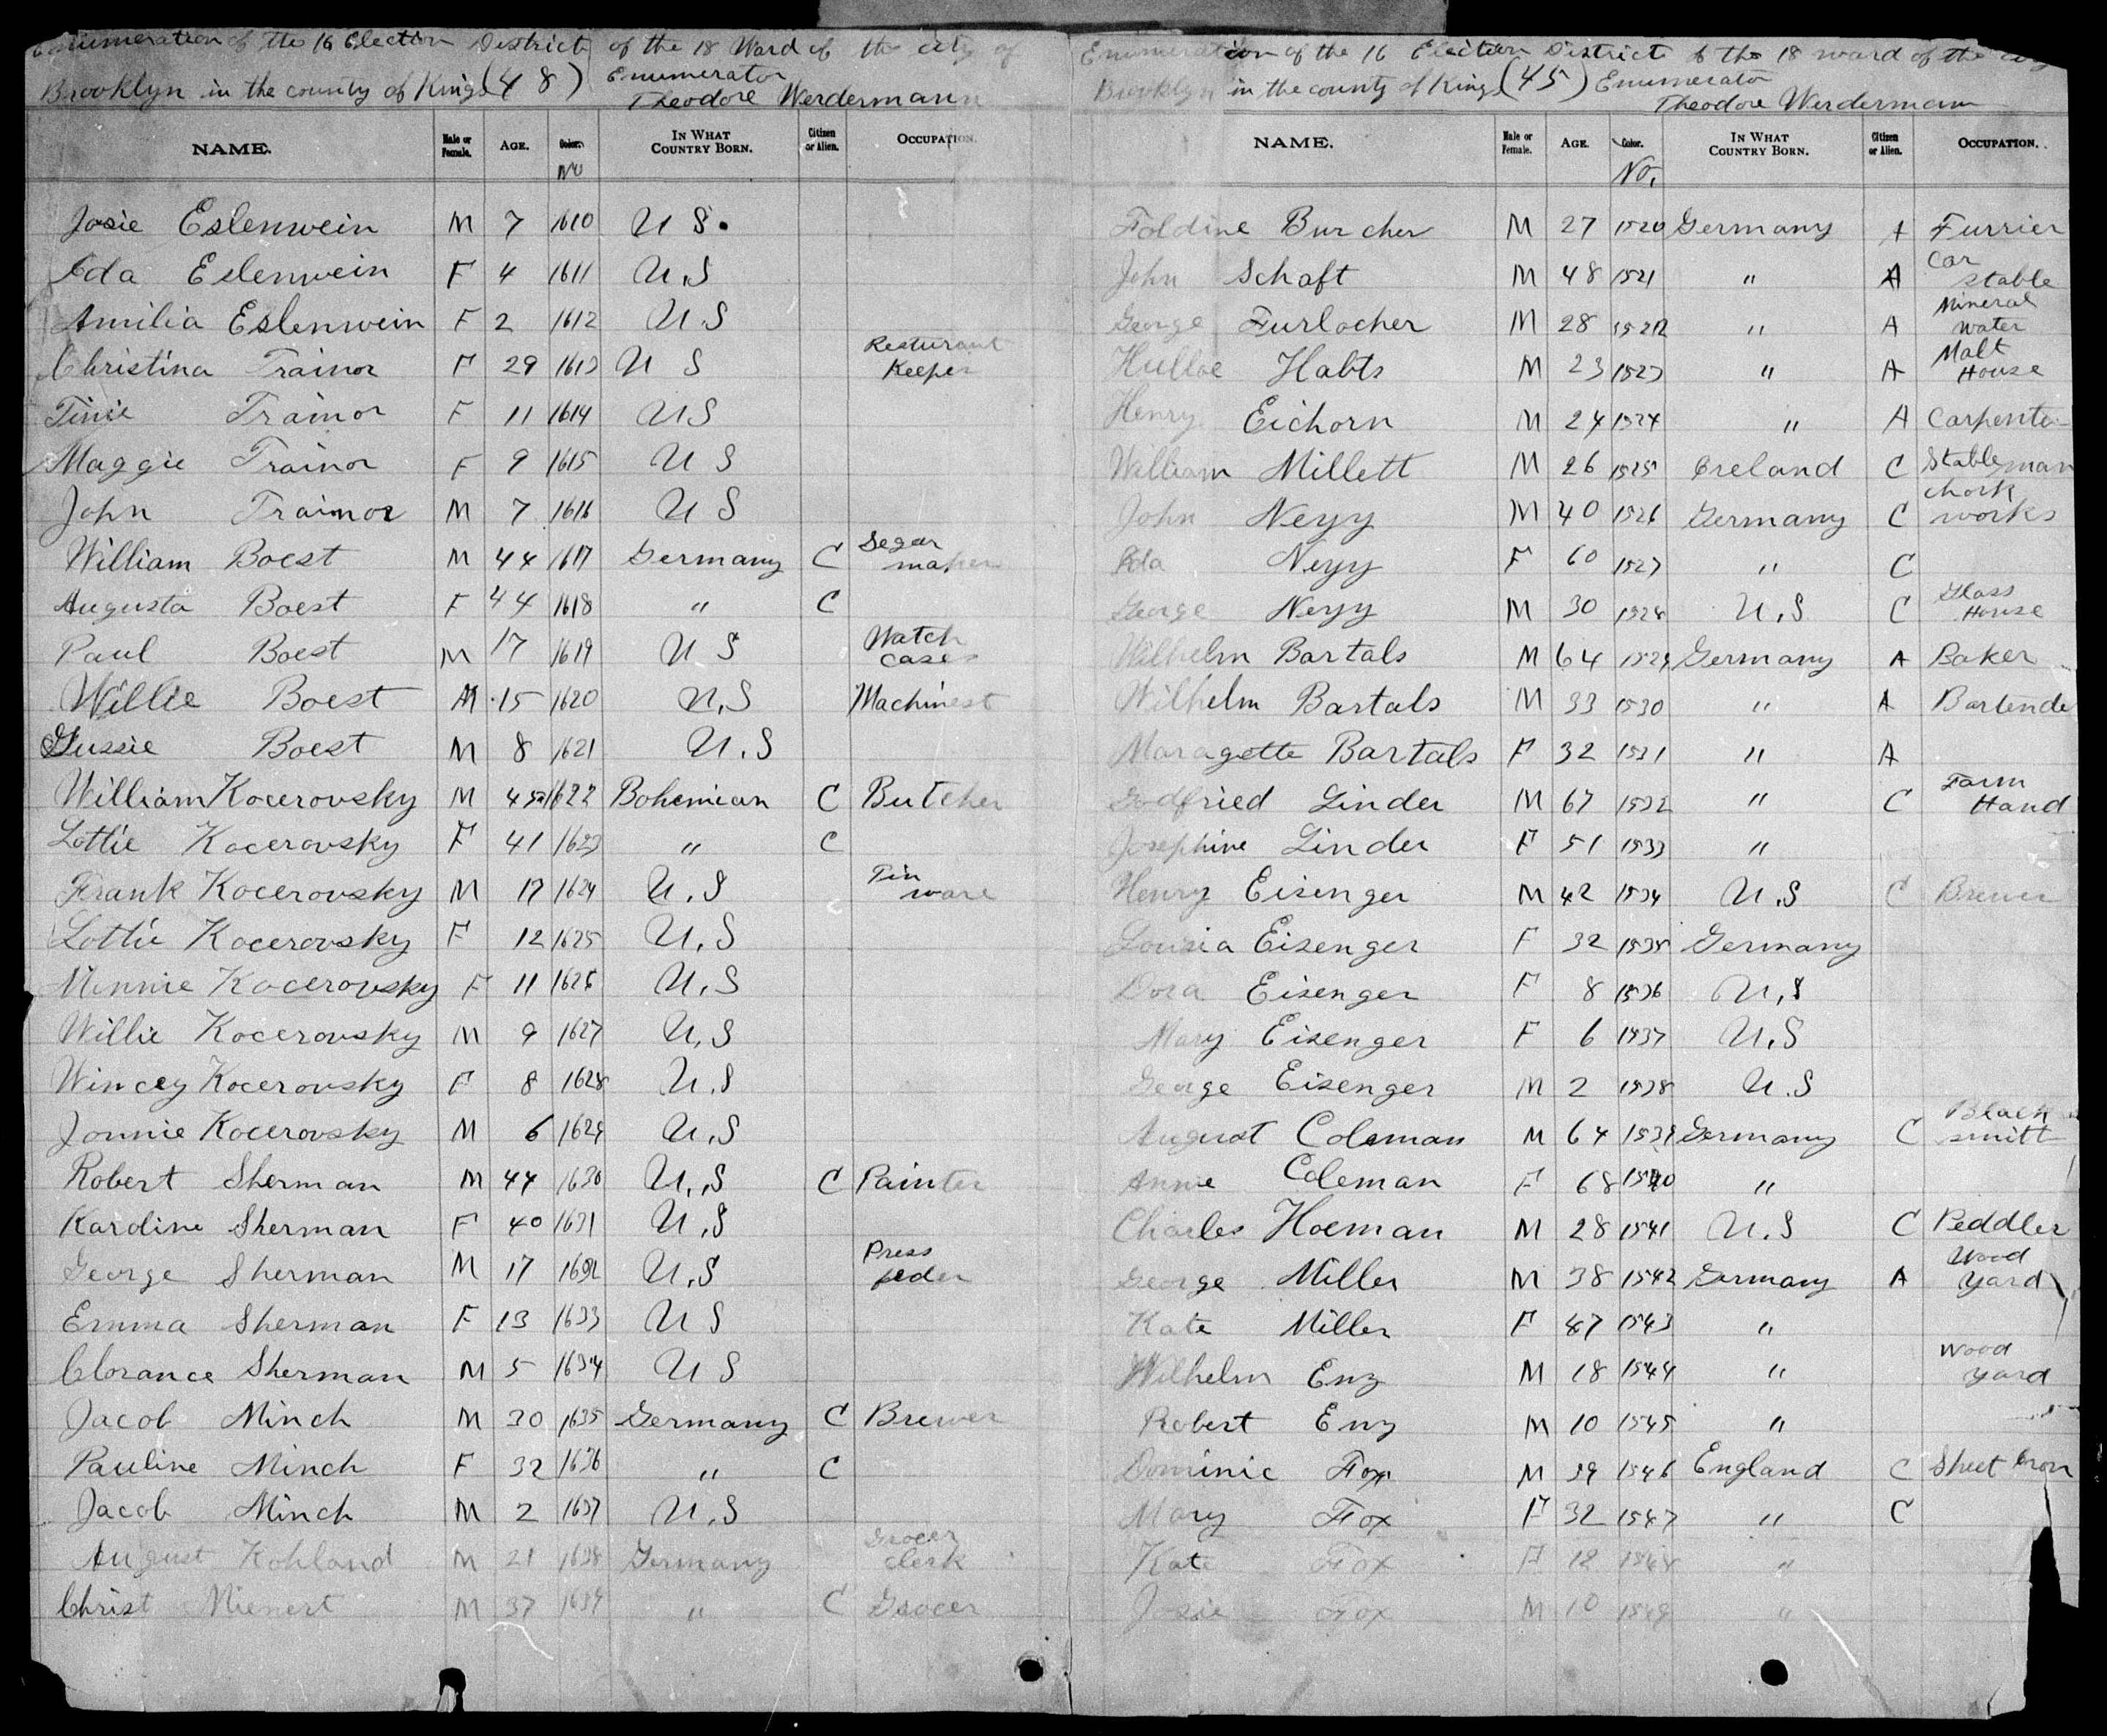 Enumeration of the 16 Election District of the 18 Ward of the city of
Brooklyn in the county of Kings (48) Enumerator
Theodore Werdermann
NAME. Male or Female. AGE. Color. IN WHAT COUNTRY BORN. Citizen or Alien. OCCUPATION.
No
Josie Eslenwein M 7 1610 U S.
Ada Eslenwein F 4 1611 U.S
Amilia Eslenwein F 2 1612 U.S
Christina Trainor F 29 1613 U S Resturant Keeper
Tinie Trainor F 11 1614 U S
Maggie Trainor F 9 1615 U S
John Trainor M 7 1616 U S
William Boest M 44 1617 Germany C Segar maker
Augusta Boest F 44 1618 " C
Paul Boest M 17 1619 U S Watch cases
Willie Boest M 15 1620 U.S Machinest
Gussie Boest M 8 1621 U.S
William Kocerovsky M 45 1622 Bohemian C Butcher
Lottie Kocerovsky F 41 1623 " C
Frank Kocerovsky M 17 1624 U.S Tin ware
Lottie Kocerovsky F 12 1625 U.S
Minnie Kocerovsky F 11 1626 U.S
Willie Kocerovsky M 9 1627 U.S
Wincey Kocerovsky F 8 1628 U.S
Jonnie Kocerovsky M 6 1629 U.S
Robert Sherman M 44 1630 U.S C Painter
Karoline Sherman F 40 1631 U.S
George Sherman M 17 1632 U.S Press feder
Emma Sherman F 13 1633 U S
Clorance Sherman M 5 1634 U S
Jacob Minch M 30 1635 Germany C Brewer
Pauline Minch F 32 1636 " C
Jacob Minch M 2 1637 U.S
August Kohland M 21 1638 Germany Grocer Clerk
Christ Mienert M 37 1639 " C Grocer
Enumeration of the 16 Election District of the 18 ward of the city
Brooklyn in the county of Kings (45) Enumerator
Theodore Werdermann
NAME. Male or Female. AGE. Color. IN WHAT COUNTRY BORN. Citizen or Alien. OCCUPATION.
No.
Foldine Burcher M 27 1520 Germany A Furrier
John Schaft M 48 1521 " A Car stable
George Furlocher M 28 1522 " A Mineral water
Hulloe Habts M 23 1523 " A Malt House
Henry Eichorn M 24 1524 " A Carpenter
William Millett M 26 1525 Ireland C Stableman
John Neyy M 40 1526 Germany C chork works
Ada Neyy F 60 1527 " C
George Neyy M 30 1528 U.S C Glass House
Wilhelm Bartals M 64 1529 Germany A Baker
Wilhelm Bartals M 33 1530 " A Bartende
Maragette Bartals F 32 1531 " A
Godfried Linder M 67 1532 " C Farm Hand
Josephine Linder F 51 1533 "
Henry Eisenger M 42 1534 U.S C Brewer
Lousia Eisenger F 32 1535 Germany
Dora Eisenger F 8 1536 U.S
Mary Eisenger F 6 1537 U.S
George Eisenger M 2 1538 U.S
August Coleman M 64 1539 Germany C Black smitt
Annie Coleman F 68 1540 "
Charles Hoeman M 28 1541 U.S C Peddler
George Miller M 38 1542 Germany A Wood Yard
Kate Miller F 47 1543 "
Wilhelm Enz M 18 1544 " Wood yard
Robert Enz M 10 1545 "
Dominic Fox M 39 1546 England C Sheet Iron
Mary Fox F 32 1547 " C
Kate Fox F 12 1548 "
Josie Fox M 10 1549 "